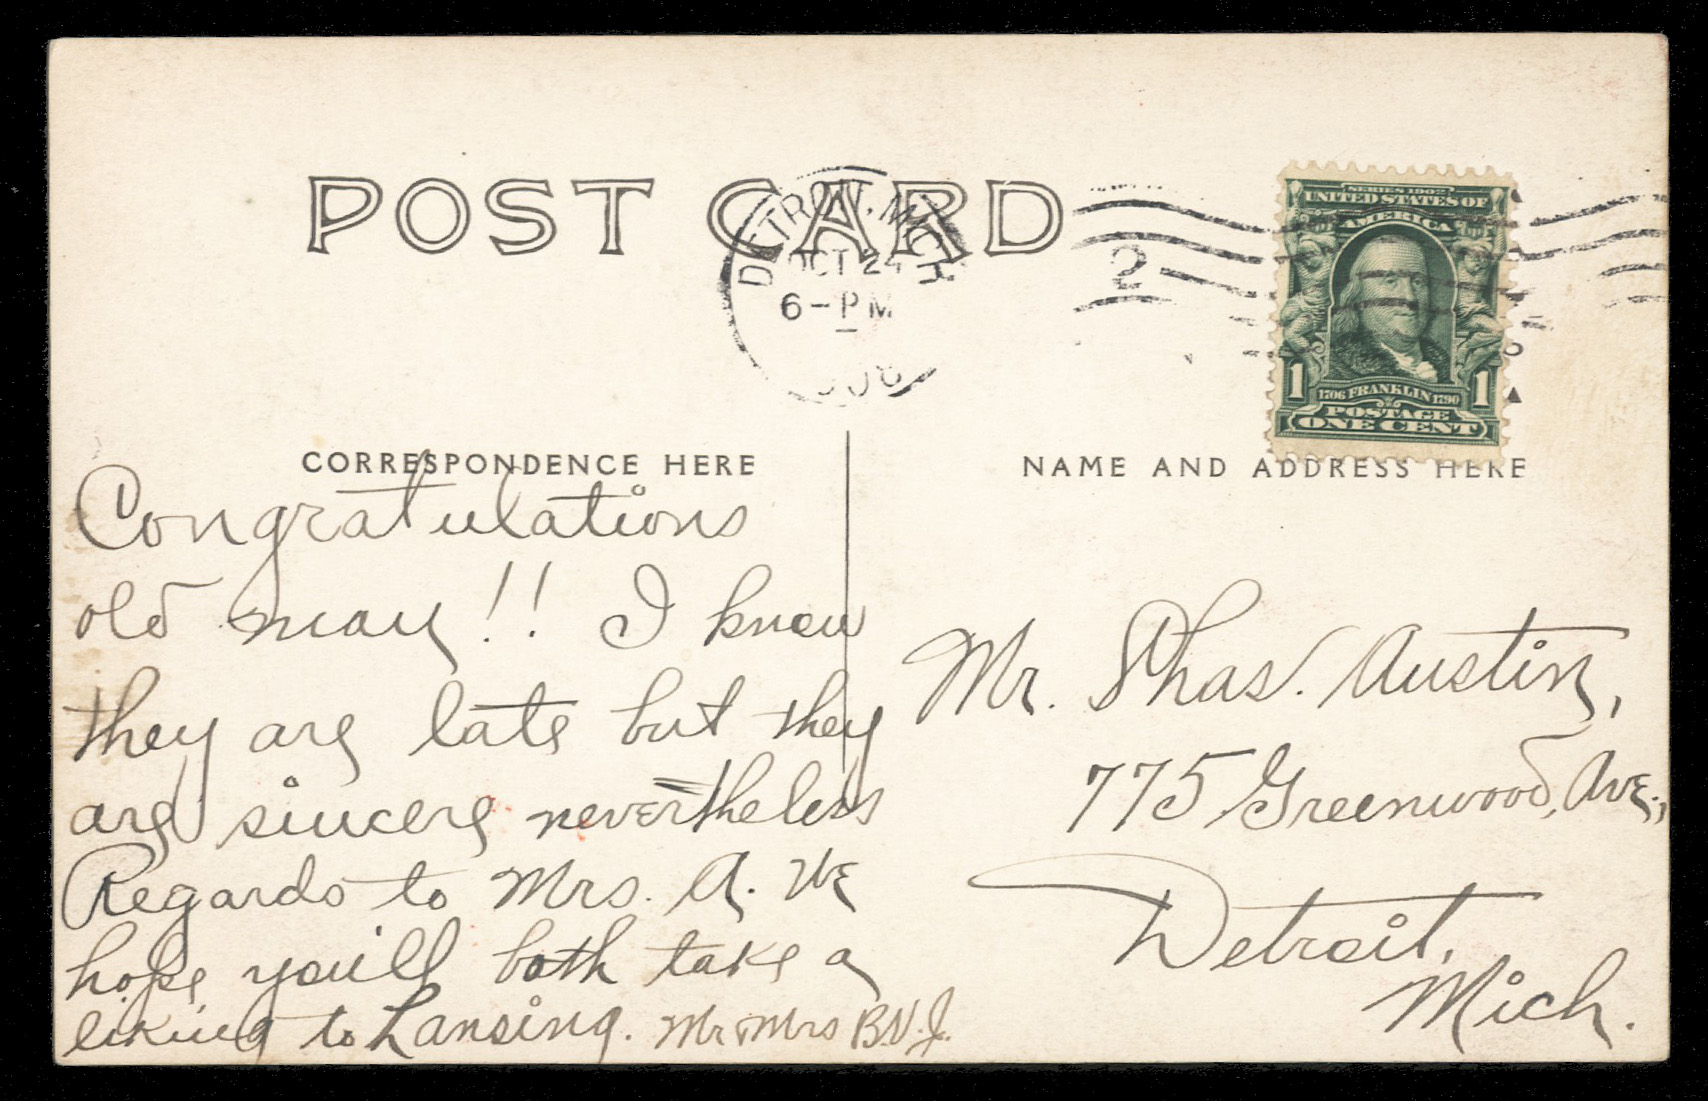 POST CARD
DETROIT, MICH
OCT 24
6-PM
2
SERIES 1902
UNITED STATES OF
AMERICA
1 1706 FRANKLIN 1790 1
POSTAGE
ONE CENT
CORRESPONDENCE HERE
NAME AND ADDRESS HERE
Congratulations
old man!! I know
they are late but they
are sincere nevertheless
Regards to Mrs. A. We
hope you'll both take a
liking to Lansing. Mr & Mrs B.V.J.
Mr. Chas. Austin,
775 Greenwood, Ave.,
Detroit,
Mich.